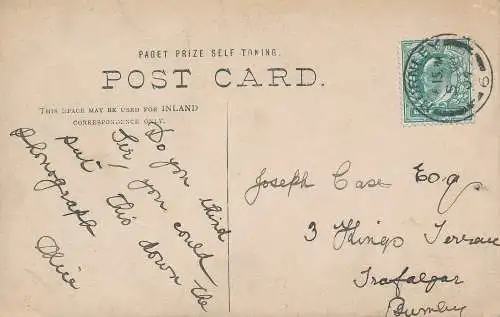 PAGET PRIZE SELF TONING.
POST CARD.
THIS SPACE MAY BE USED FOR INLAND
CORRESPONDENCE ONLY.
Do you think
Sir, you could
put this down the
phonograph
Alice
Joseph Case Esq.
3 Kings Terrace
Trafalgar
Burnley
BURNLEY